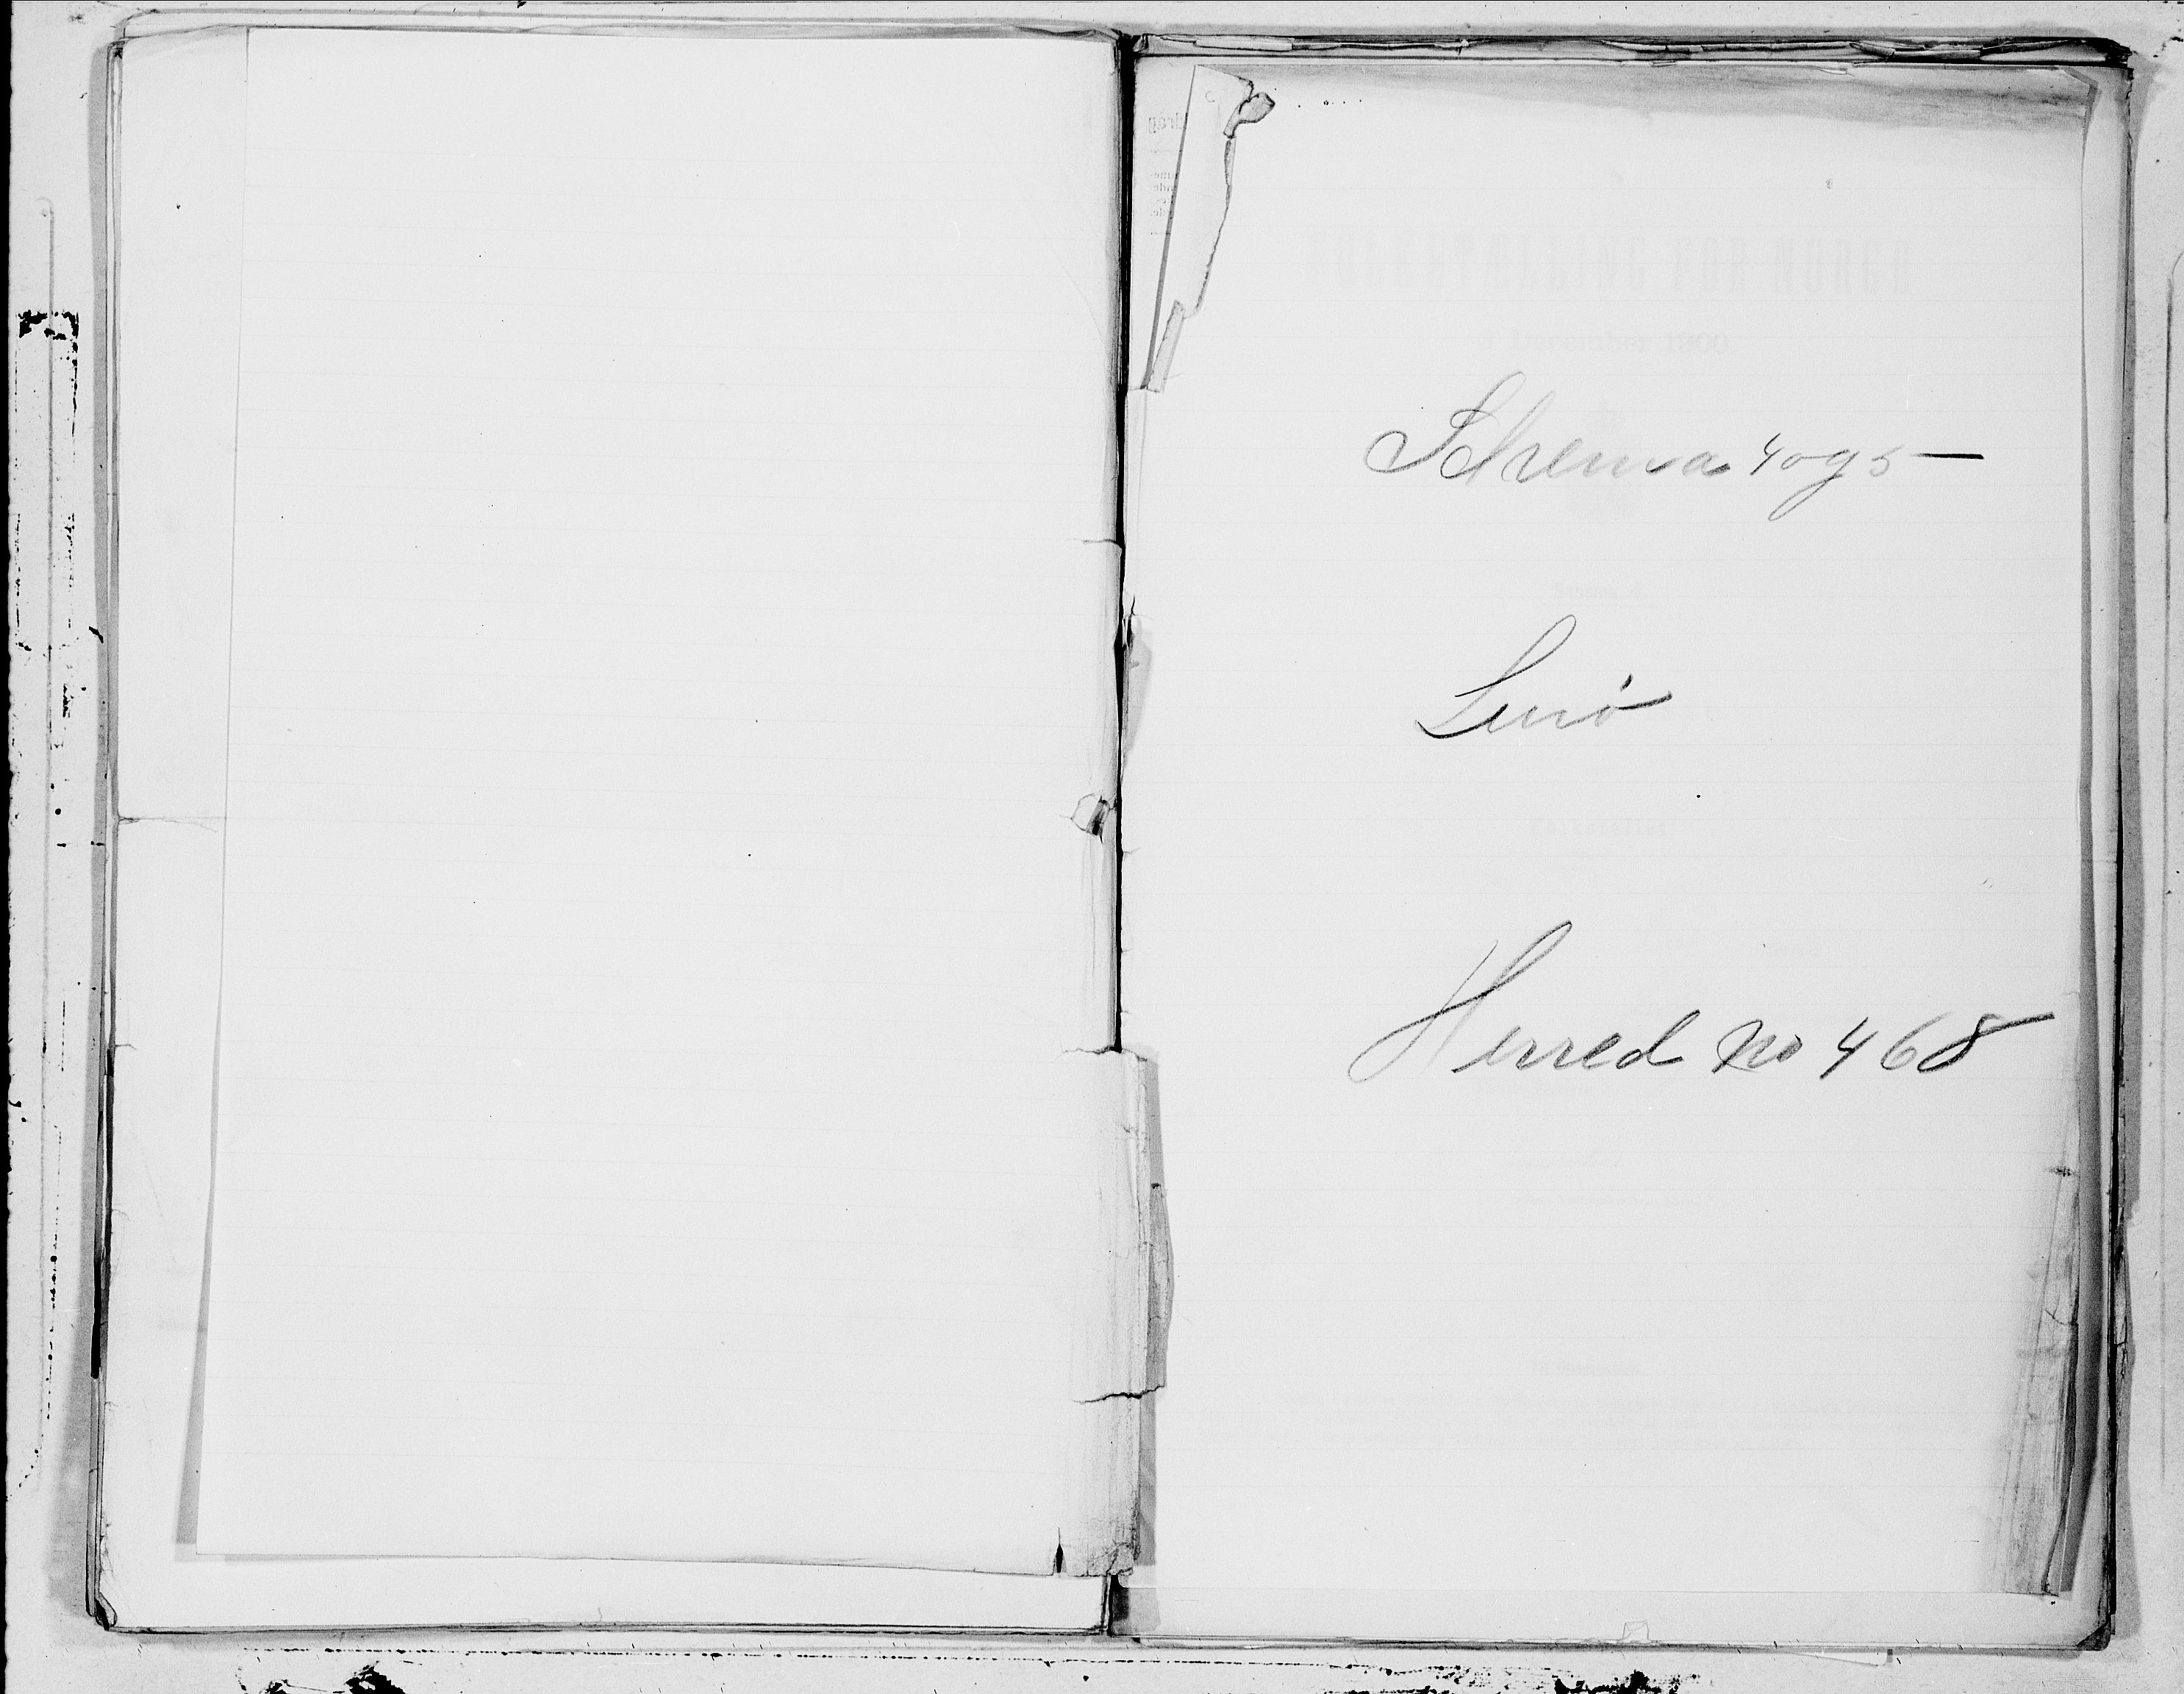 FOLKETÆLLING FOR NORGE
3 December 1900
Schema 4 og 5
Lurø
Herred No 468